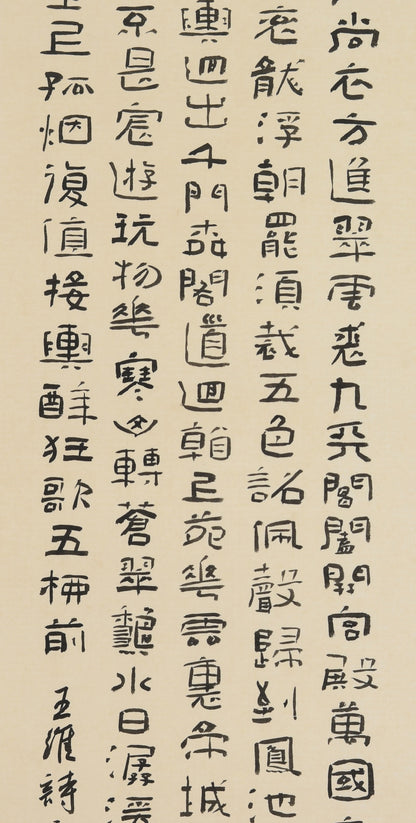 尚衣方進翠雲裘九天閶闔開宮殿萬國
衮龍浮朝罷須裁五色詔佩聲歸到鳳池
輿迥出千門柳閣道迴看上苑花雲裏帝城
不是宸遊玩物華寒山轉蒼翠秋水日潺湲
里上孤烟復值接輿醉狂歌五柳前 王維詩